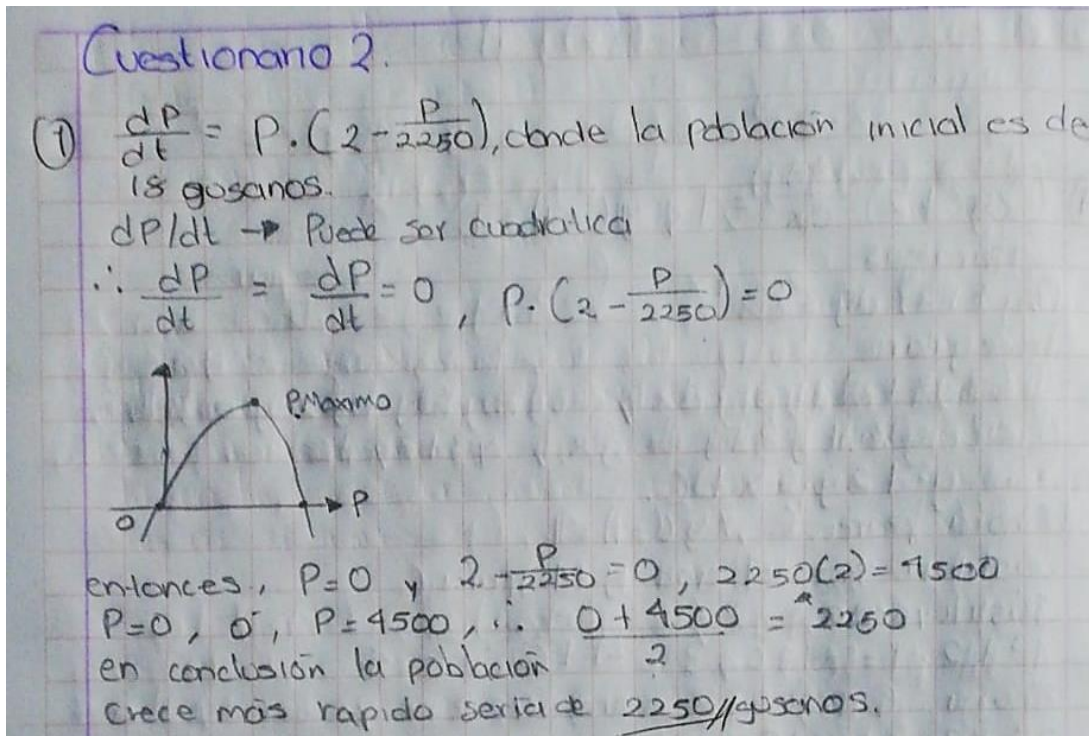 Cuestionario 2.
① dP/dt = P.(2 - P/2250), donde la población inicial es de
18 gusanos.
dP/dt → Puede ser cuadratica
∴ dP/dt = dP/dt = 0, P.(2 - P/2250) = 0
PMaximo
0
P
entonces, P=0 y 2 - P/2250 = 0, 2250(2) = 4500
P=0, o, P=4500, ∴ (0 + 4500)/2 = 2250
en conclusión la población
crece más rapido seria de 2250// gusanos.